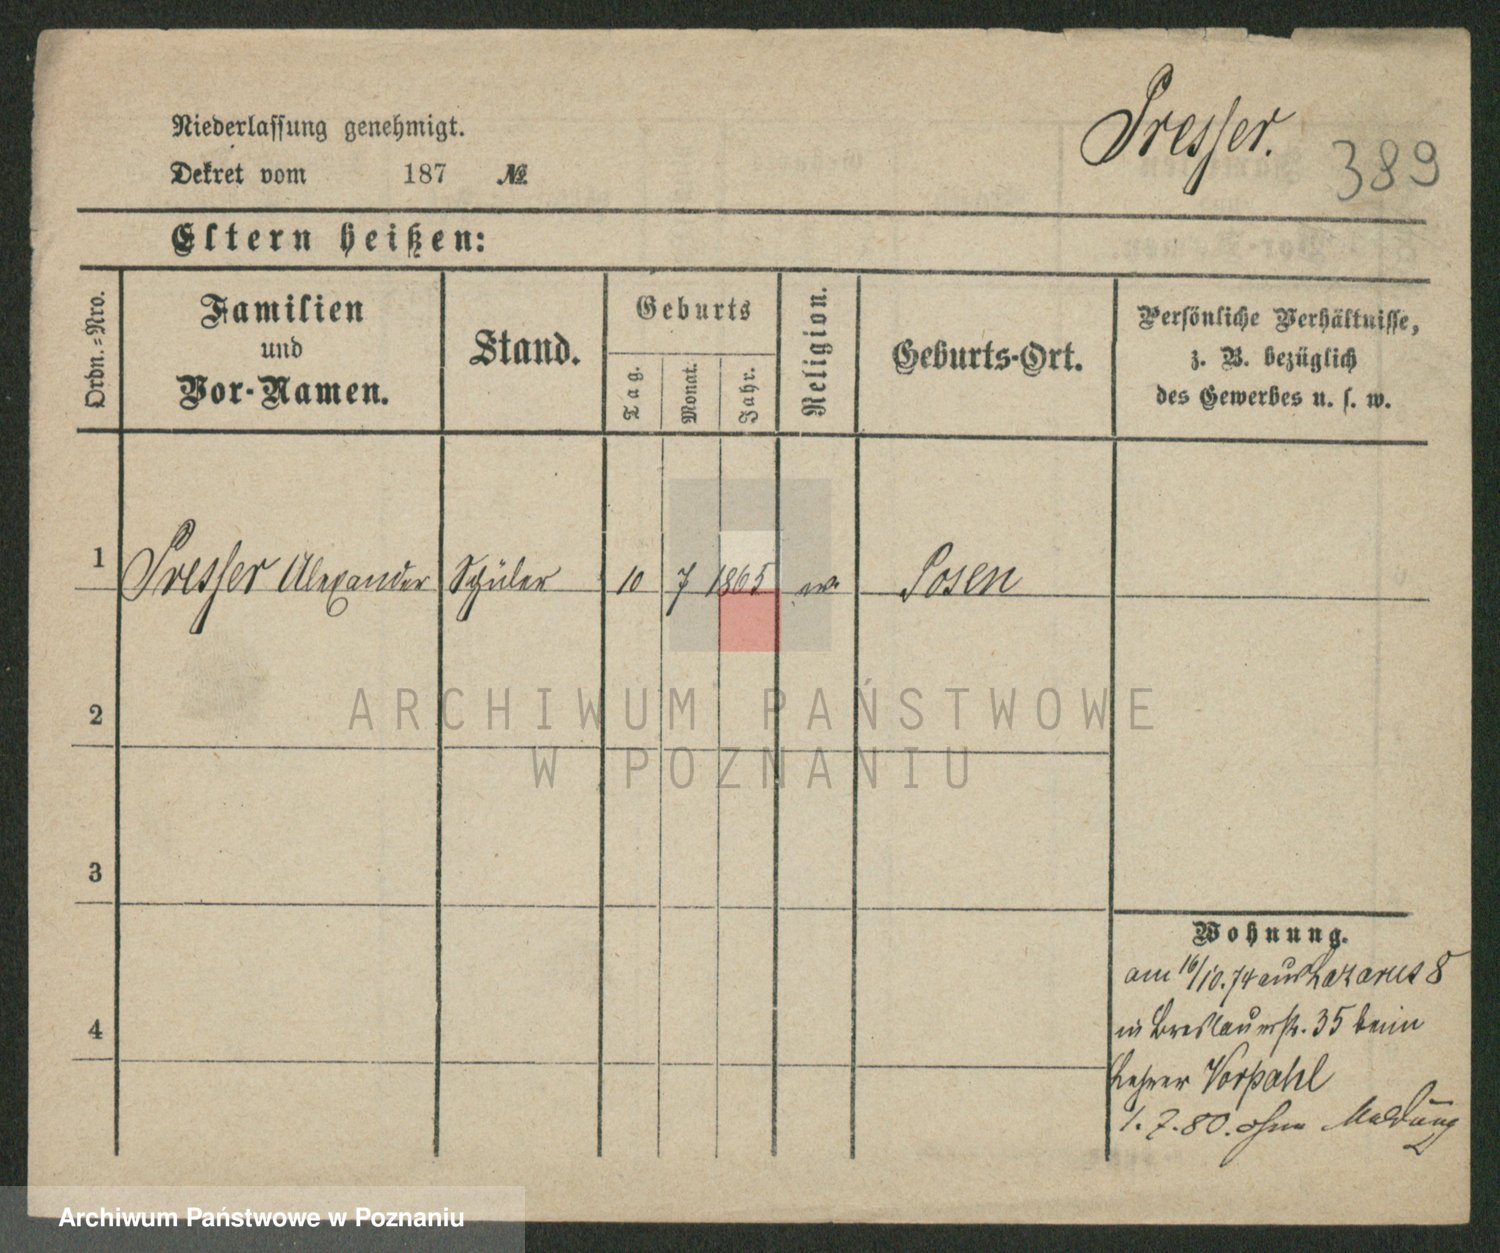 Presser.
389
Niederlassung genehmigt.
Dekret vom 187 №
Eltern heißen:
Ordn.-Nro.
Familien
und
Vor-Namen.
Stand.
Geburts
Tag.
Monat.
Jahr.
Religion.
Geburts-Ort.
Persönliche Verhältnisse,
z. B. bezüglich
des Gewerbes u. s. w.
1 Presser Alexander Schüler 10 7 1865 ev. Posen
2
3
4
ARCHIWUM PAŃSTWOWE
W POZNANIU
Wohnung.
am 16/10.74 aus Lazarus 8
in Breslauerstr. 35 beim
Lehrer Vorpahl
1.7.80. ohne Meldung
Archiwum Państwowe w Poznaniu